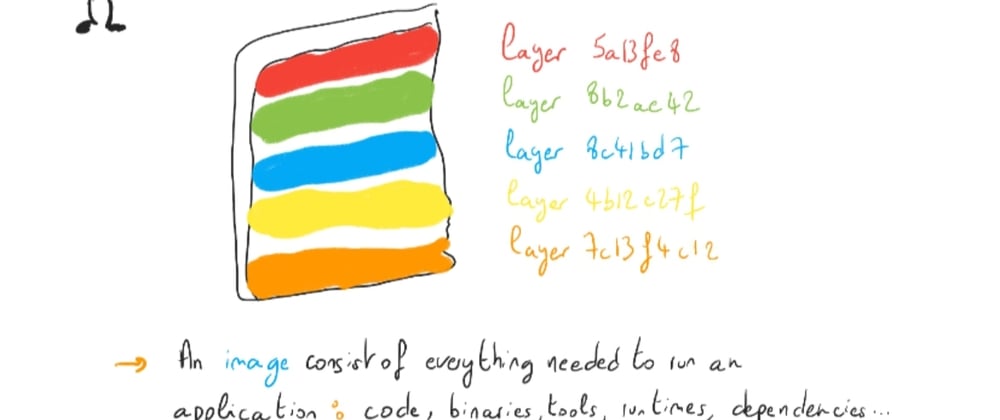 layer 5a13fe8
layer 8b2ac42
layer 8c41bd7
layer 4b12c27f
layer 7c13f4c12
→ An image consist of everything needed to run an
application : code, binaries, tools, runtimes, dependencies...